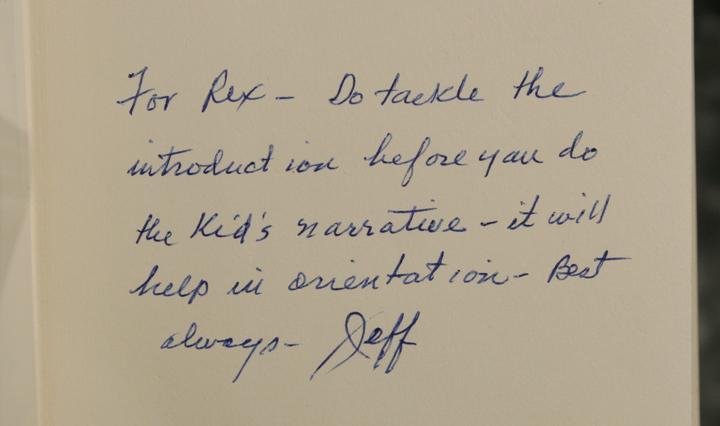 For Rex – Do tackle the
introduction before you do
the Kid's narrative – it will
help in orientation – Best
always – Jeff